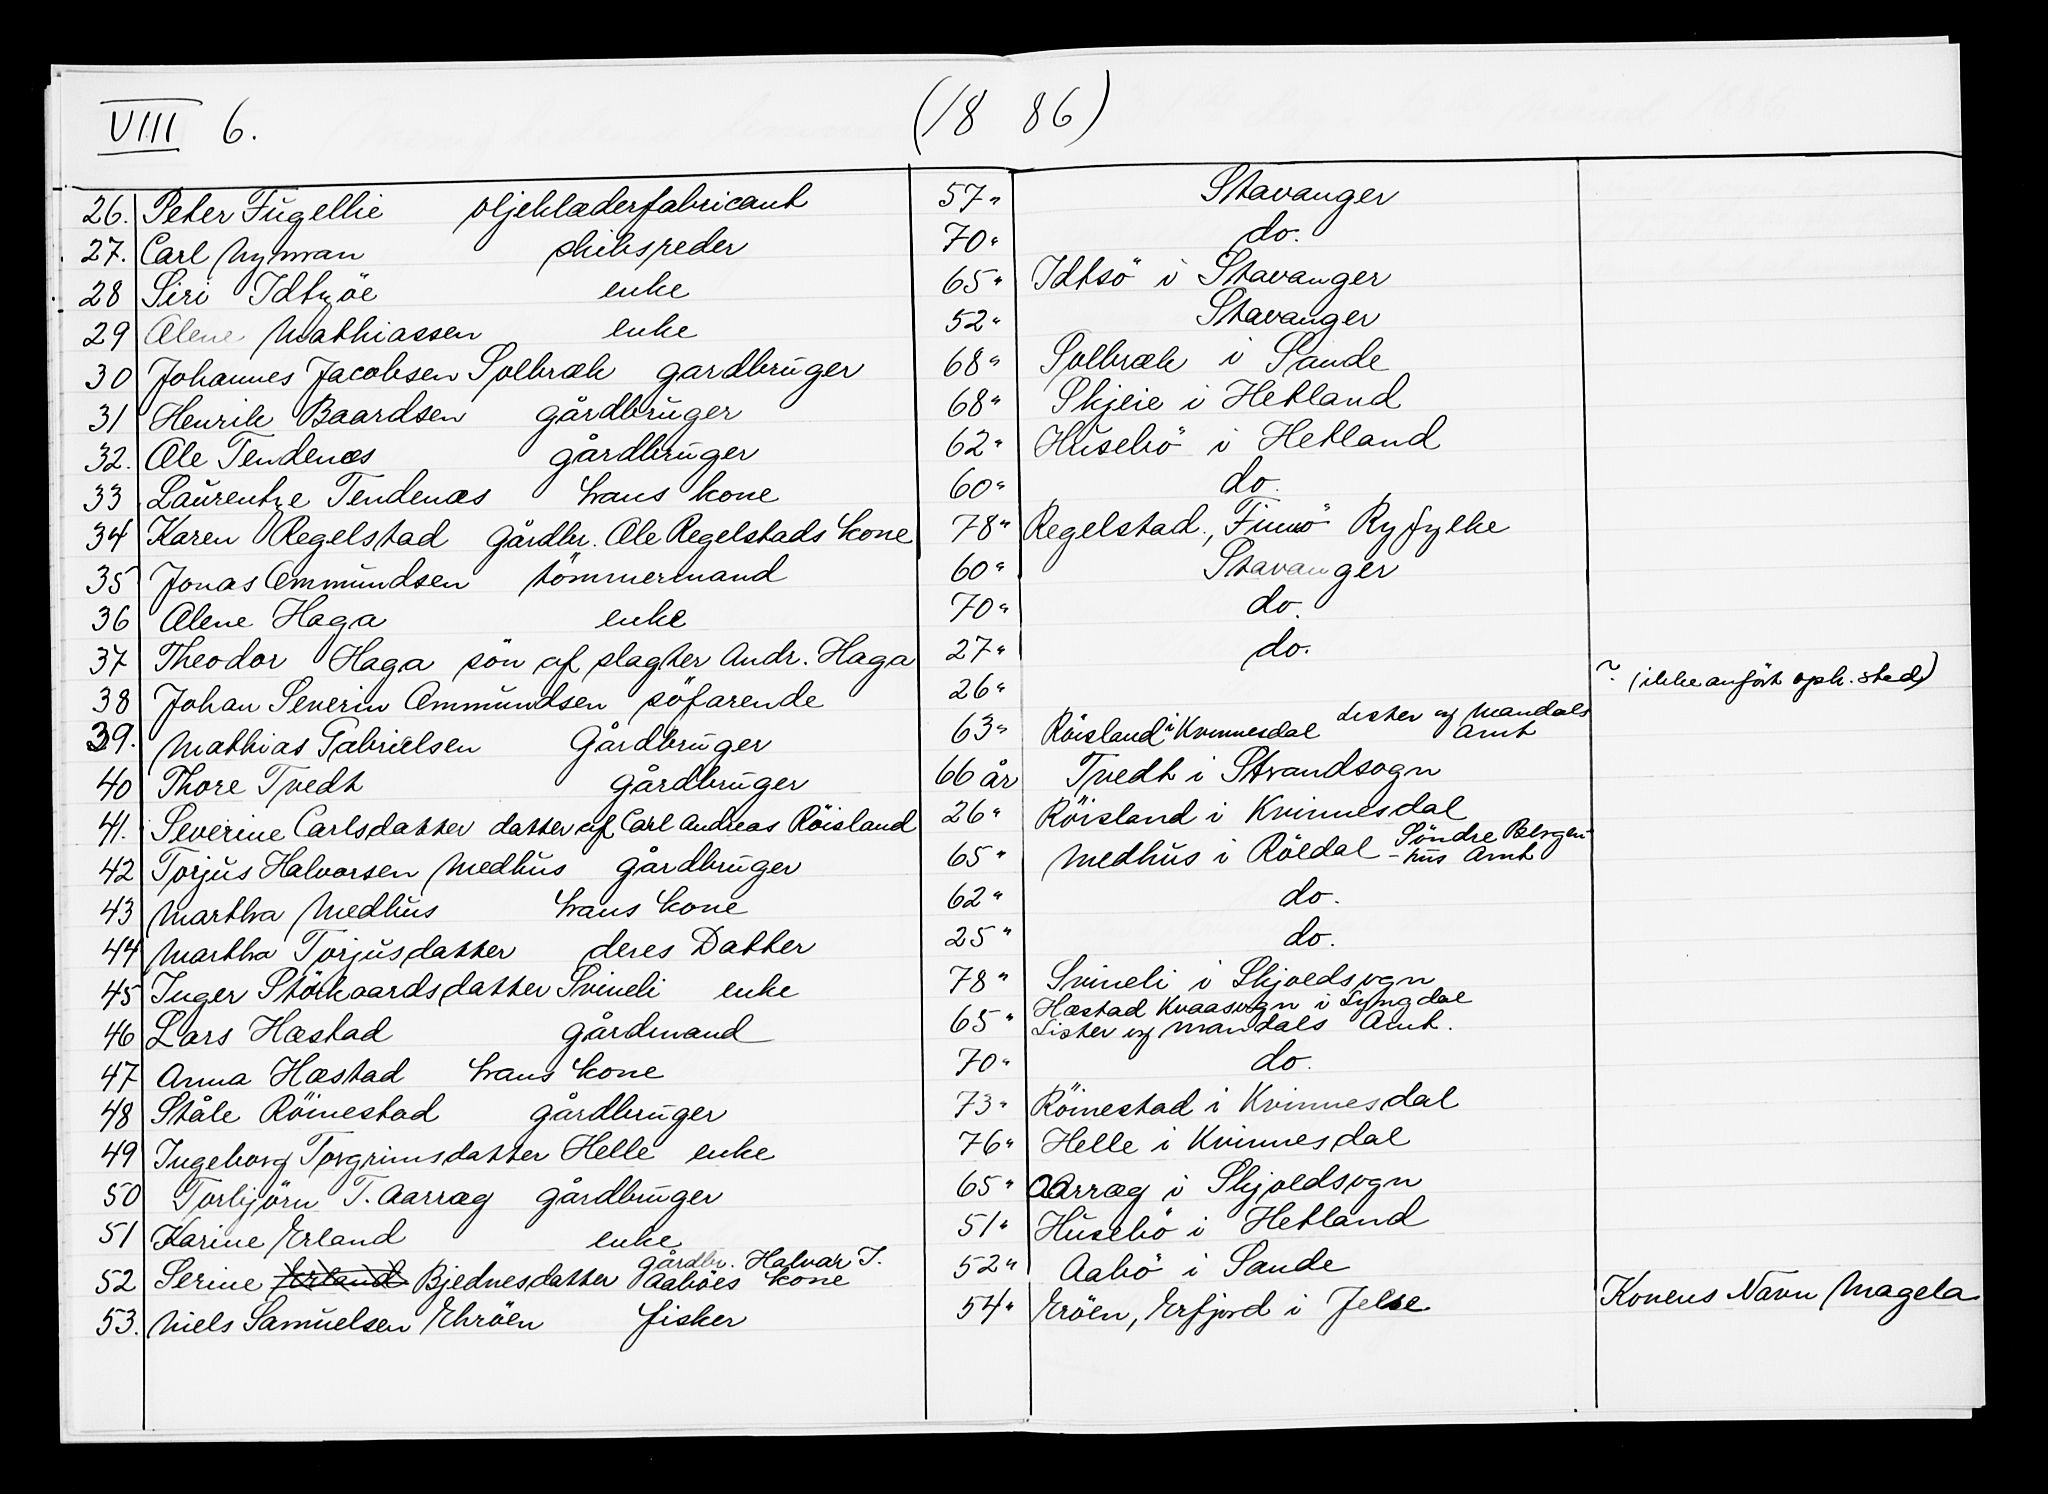 VIII 6. (18 86)
26. Peter Fugellie oljeklæderfabricant 57" Stavanger
27. Carl Nyman skibsreder 70" do.
28 Siri Idtzöe enke 65" Idtsö i Stavanger
29 Alene Mathiassen enke 52" Stavanger
30 Johannes Jacobsen Solbræk gardbruger 68" Solbræk i Sande
31 Henrik Baardsen gårdbruger 68" Skjeie i Hetland
32. Ole Tendenæs gårdbruger 62" Husebö i Hetland
33 Laurentze Tendenæs hans kone 60" do.
34 Karen Regelstad gårdbr. Ole Regelstads kone 78" Regelstad., Finnö Ryfylke
35 Jonas Ommundsen tömmermand 60" Stavanger
36 Olene Haga enke 70" do.
37 Theodor Haga sön af slagter Andr. Haga 27" do.
38 Johan Severin Ommundsen söfarende 26" ? (ikke anfört oph. sted)
39. Mathias Gabrielsen Gårdbruger 63" Röisland i Kvinnesdal Lister og Mandals Amt
40 Thore Tvedt gårdbruger 66 år Tvedt i Strandsogn
41. Severine Carlsdatter datter af Carl Andreas Röisland 26" Röisland i Kvinnesdal
42 Torjus Halvorsen Medhus gårdbruger 65" Medhus i Röldal Söndre Bergen-
-hus Amt
43 Martha Medhus hans kone 62" do.
44 Martha Torjusdatter deres Datter 25" do.
45 Inger Störkaardsdatter Svineli enke 78" Svineli i Skjoldsogn
46 Lars Hæstad gårdmand 65" Hæstad Kvaasogn i Lyngdal
Lister og Mandals Amt.
47 Anna Hæstad hans kone 70" do.
48 Ståle Röinestad gårdbruger 73" Röinestad i Kvinnesdal
49 Ingeborg Torgrimsdatter Helle enke 76" Helle i Kvinnesdal
50 Torbjörn T. Aarræg gårdbruger 65" Aarræg i Skjoldsogn
51 Karine Erland enke 51" Husebö i Hetland
52 Serine Erland Bjednesdatter gårdbr. Halvar T. Aaböes kone 52" Aabö i Sande
53. Niels Samuelsen Ehröen fisker 54" Eröen, Erfjord i Jelse Konens Navn Magela